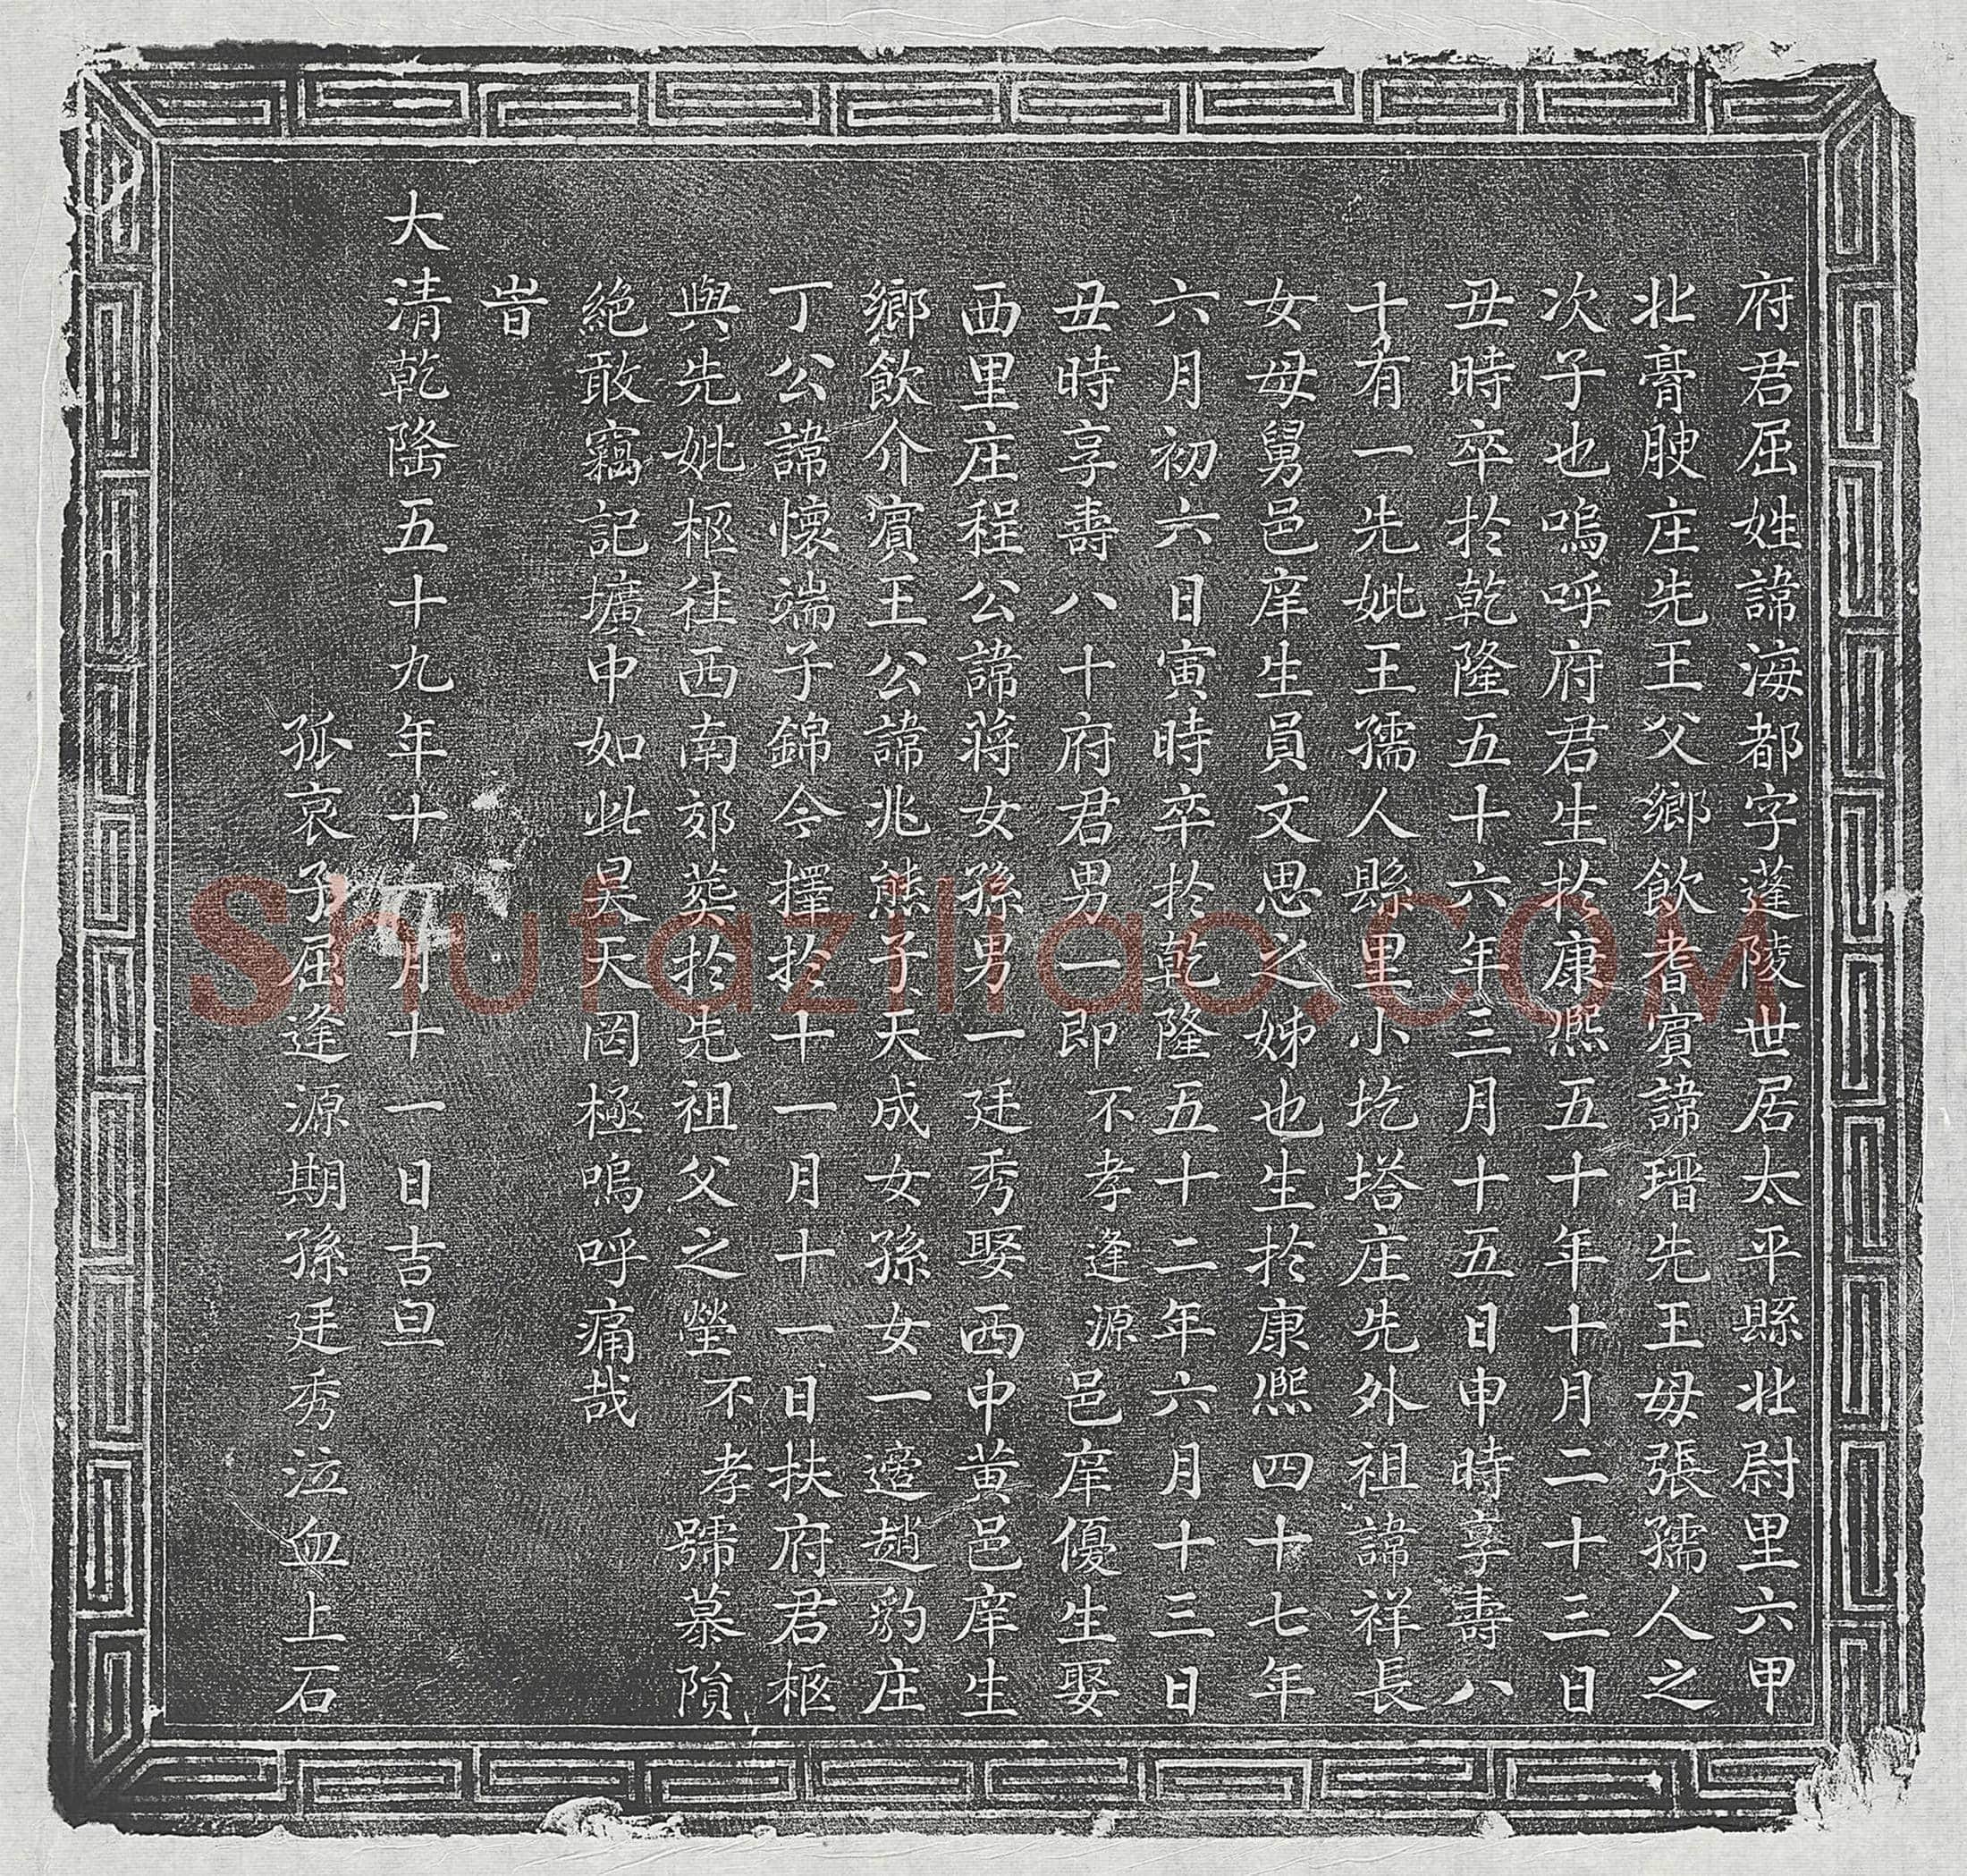 府君屈姓諱海都字蓬陵世居太平縣北尉里六甲
北膏腴庄先王父鄉飲耆賓諱瑨先王母張孺人之
次子也嗚呼府君生於康熙五十年十月二十三日
丑時卒於乾隆五十六年三月十五日申時享壽八
十有一先妣王孺人縣里小圪塔庄先外祖諱祥長
女母舅邑庠生員文思之姊也生於康熙四十七年
六月初六日寅時卒於乾隆五十二年六月十三日
丑時享壽八十府君男一即不孝逢源邑庠優生娶
西里庄程公諱蔣女孫男一廷秀娶西中黄邑庠生
鄉飲介賓王公諱兆熊子天成女孫女一適趙豹庄
丁公諱懷端子錦今擇於十一月十一日扶府君柩
與先妣柩往西南郊葬於先祖父之塋不孝號慕隕
絕敢竊記壙中如此昊天罔極嗚呼痛哉
旹
大清乾隆五十九年十一月十一日吉旦
孤哀子屈逢源期孫廷秀泣血上石
Shufaziliao.COM